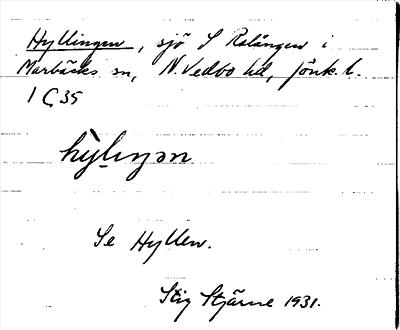 Hyllingen, sjö S Ralången i
Marbäcks sn, N. Vedbo hd, Jönk. l.
I Ç 35
hỳlıŋən
Se Hyllen.
Stig Stjärne 1931.